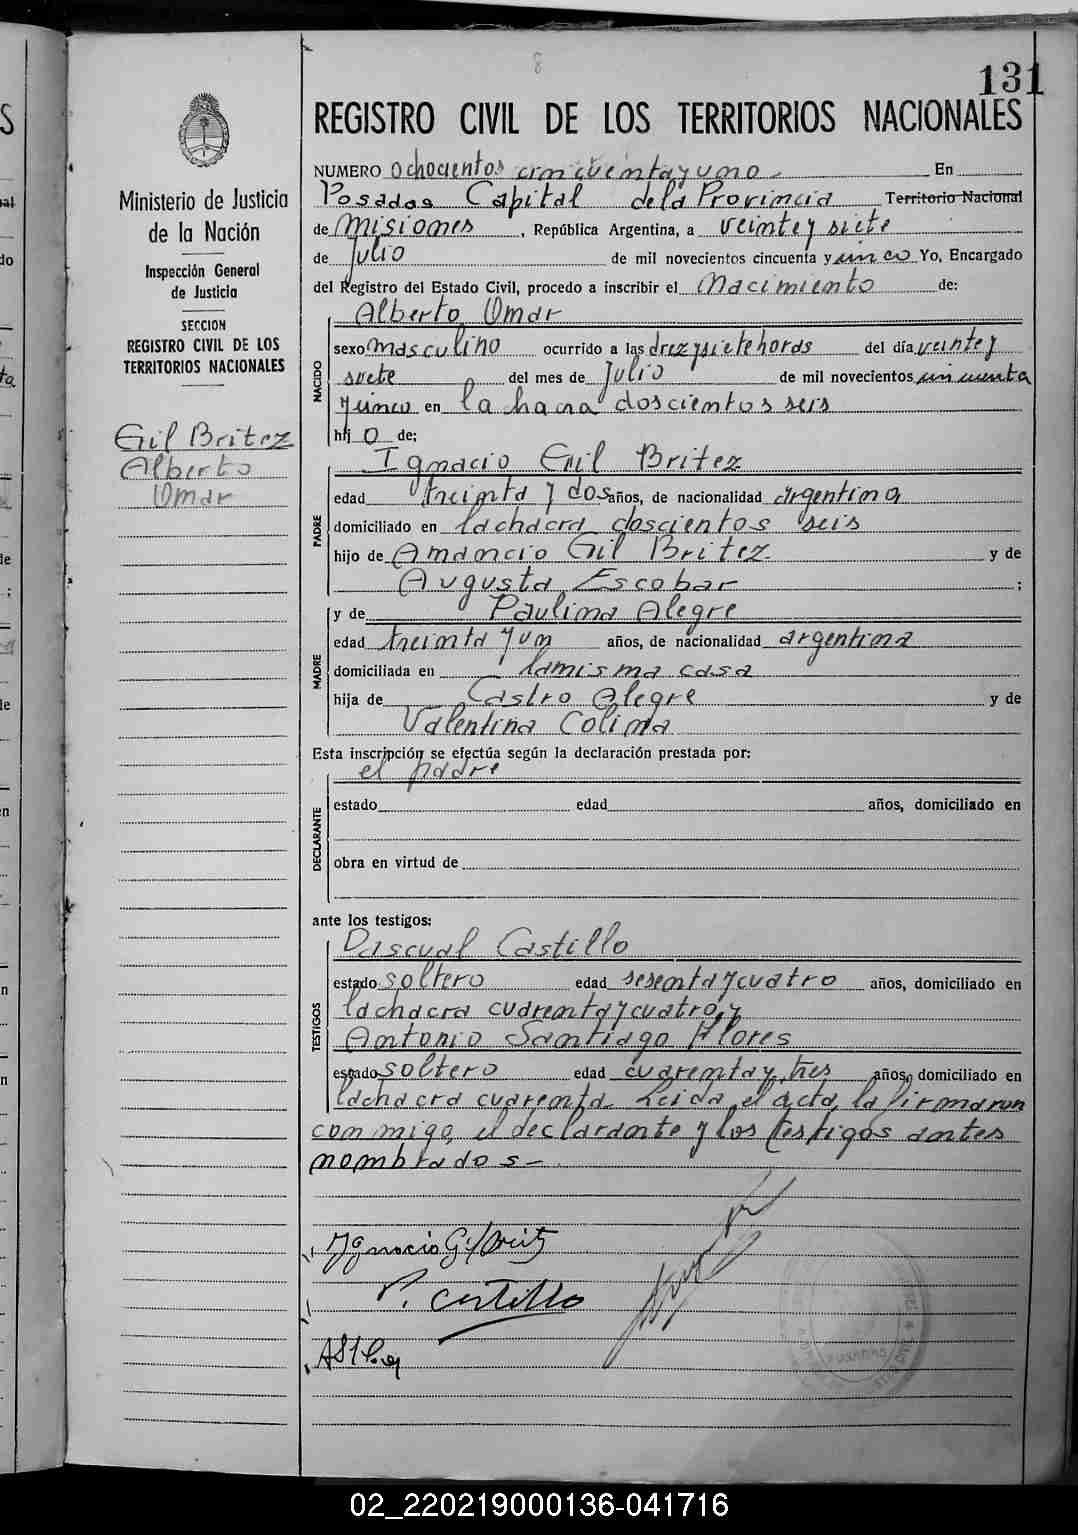 8
131
REGISTRO CIVIL DE LOS TERRITORIOS NACIONALES
Ministerio de Justicia
de la Nación
Inspección General
de Justicia
SECCION
REGISTRO CIVIL DE LOS
TERRITORIOS NACIONALES
Gil Britez
Alberto
Omar
NUMERO ochocientos cincuenta y uno - En
Posadas Capital de la Provincia Territorio Nacional
de Misiones, República Argentina, a veinte y siete
de julio de mil novecientos cincuenta y cinco Yo, Encargado
del Registro del Estado Civil, procedo a inscribir el Nacimiento de:
Alberto Omar
NACIDO
sexo masculino ocurrido a las diez y siete horas del día veinte y
siete del mes de Julio de mil novecientos cincuenta
y cinco en la chacra doscientos seis
hij o de;
Ignacio Gil Britez
PADRE
edad treinta y dos años, de nacionalidad argentina
domiciliado en la chacra doscientos seis
hijo de Amancio Gil Britez y de
Augusta Escobar ;
y de Paulina Alegre
MADRE
edad treinta y un años, de nacionalidad argentina
domiciliada en la misma casa
hija de Castro Alegre y de
Valentina Colina
Esta inscripción se efectúa según la declaración prestada por:
el padre
DECLARANTE
estado edad años, domiciliado en
obra en virtud de
ante los testigos:
Pascual Castillo
TESTIGOS
estado soltero edad sesenta y cuatro años, domiciliado en
la chacra cuarenta y cuatro, y
Antonio Santiago Flores
estado soltero edad cuarenta y tres años, domiciliado en
la chacra cuarenta. Leida el acta, la firmaron
conmigo, el declarante y los testigos antes
nombrados -
Ygnacio Gil Britez
P. Castillo
POSADAS
02_220219000136-041716